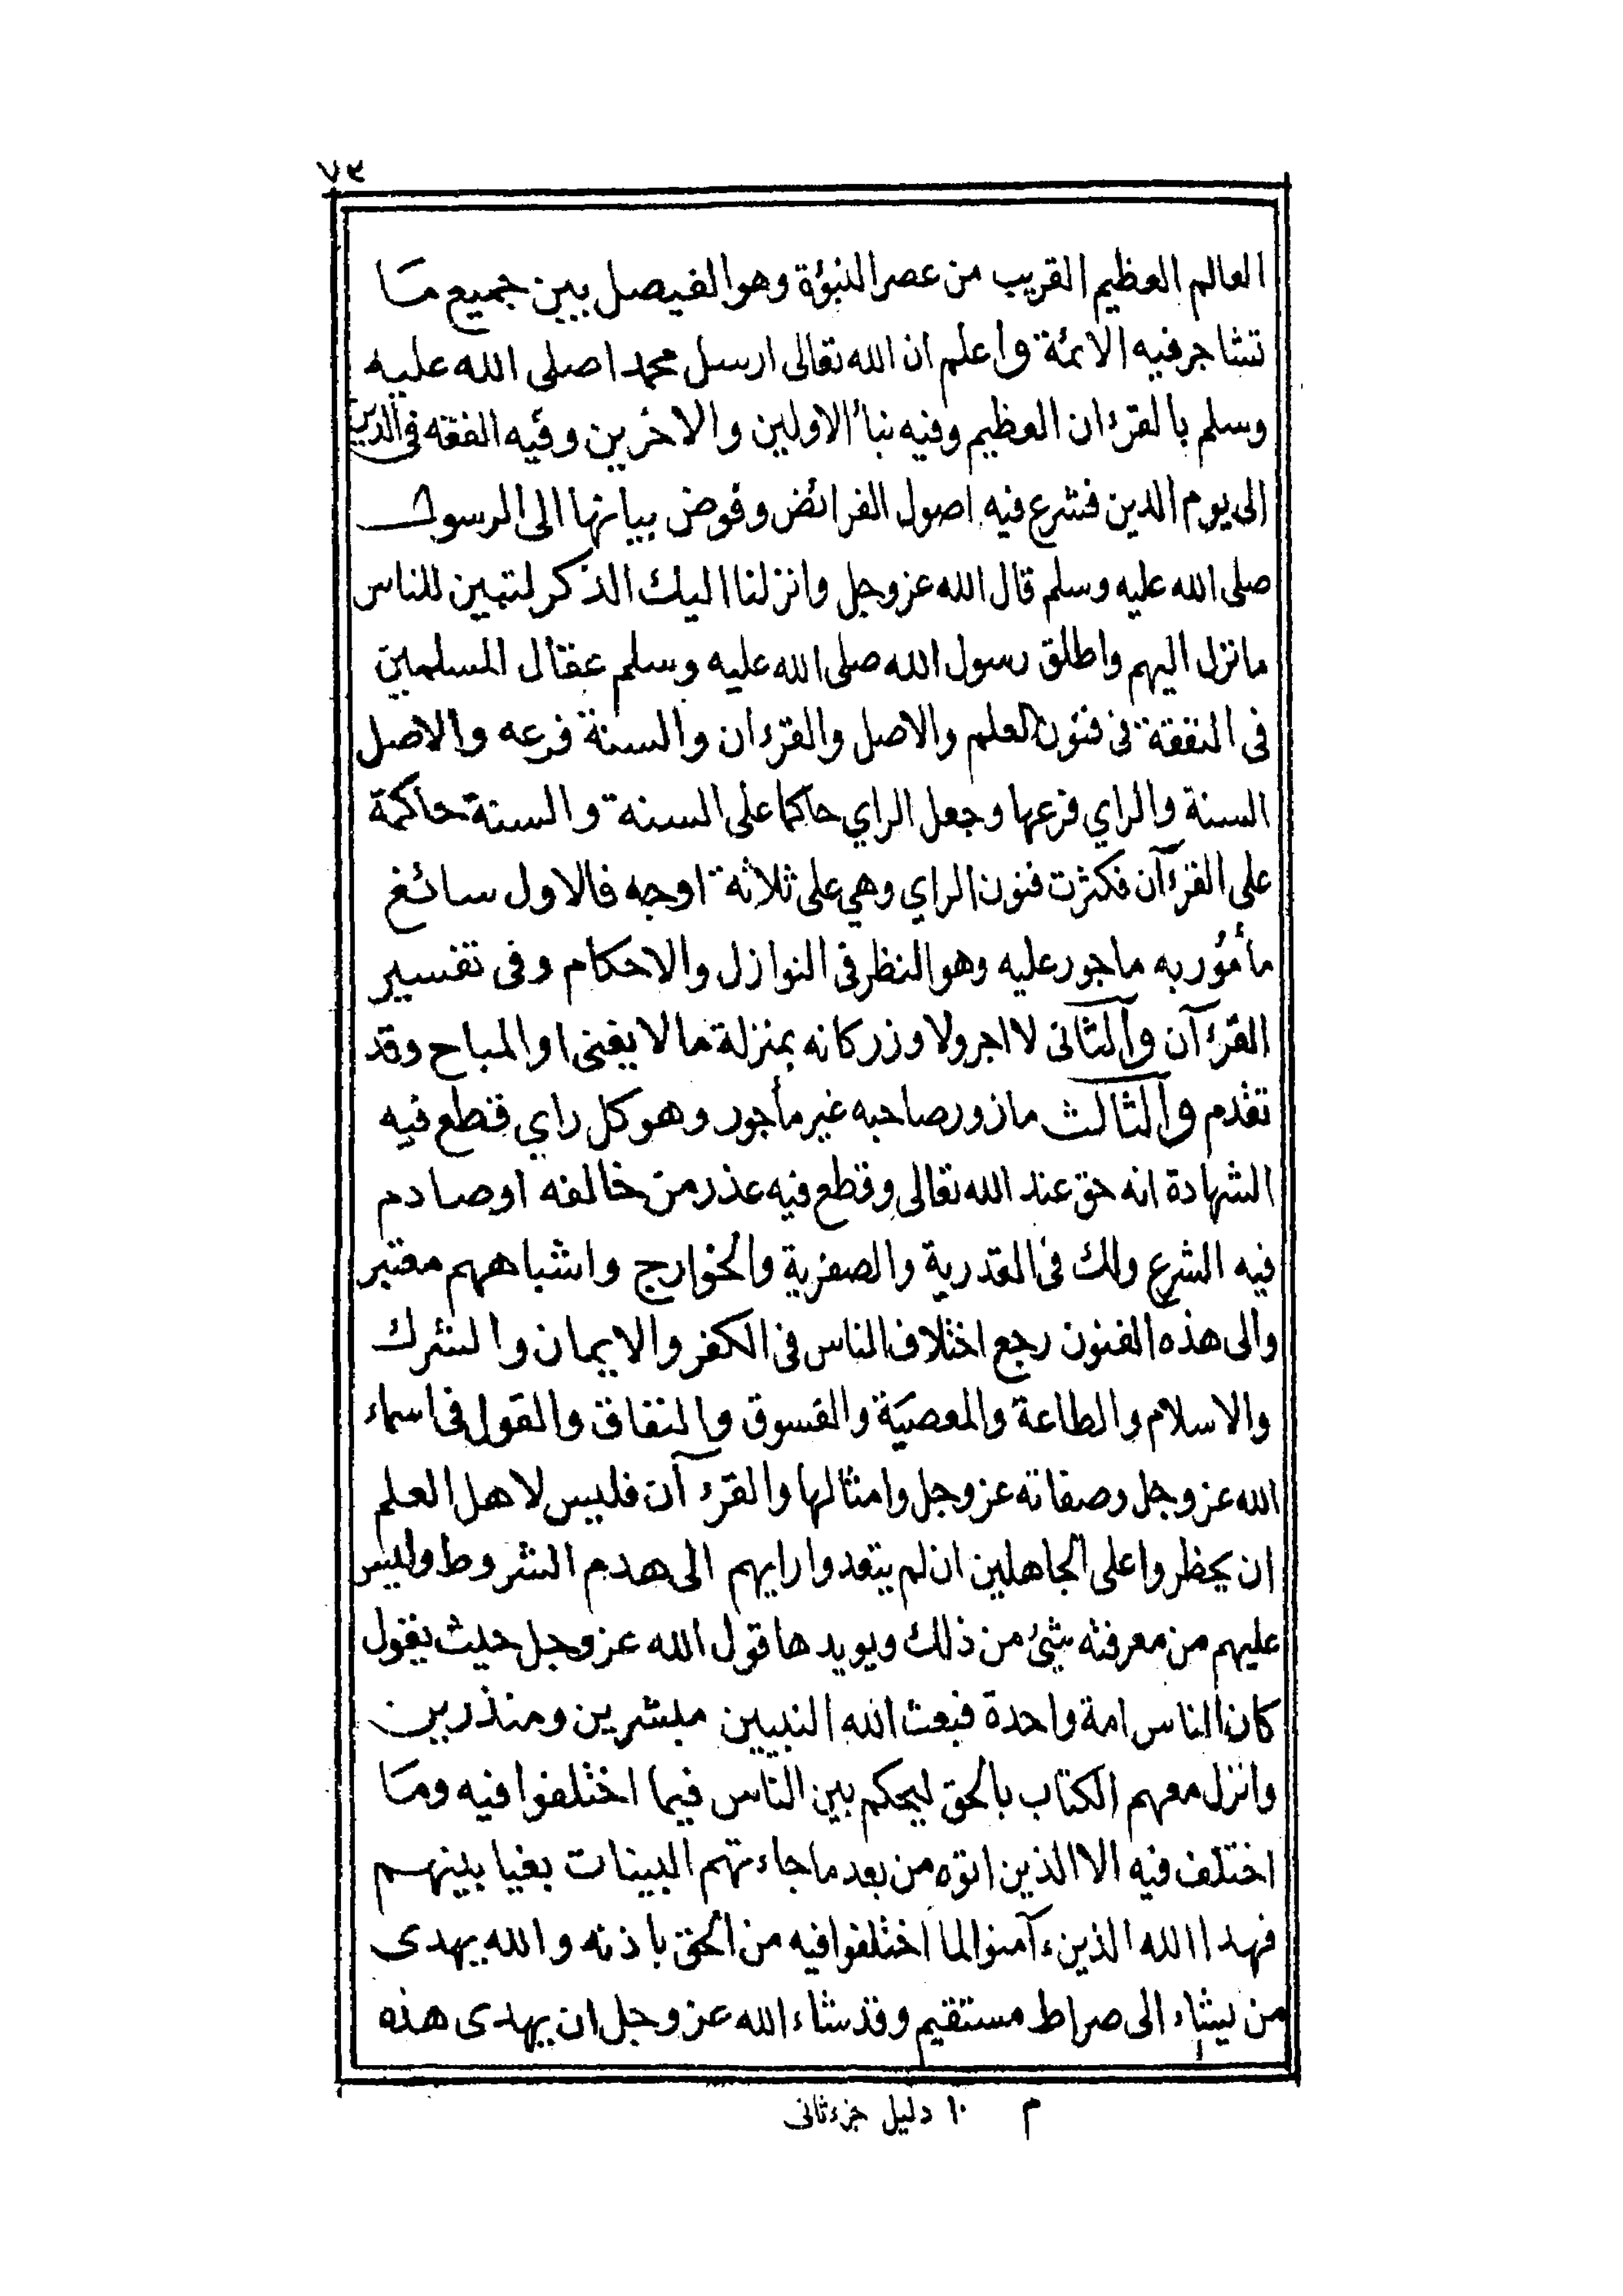 ٧٣
العالم العظيم القريب من عصر النبؤة وهو الفيصل بين جميع ما
تشاجر فيه الائمة واعلم ان الله تعالى ارسل محمدا صلى الله عليه
وسلم بالقرءان العظيم وفيه نبأ الاولين والاخرين وفيه الفقه فى الدين
الى يوم الدين فشرع فيه اصول الفرائض وفوض بيانها الى الرسول
صلى الله عليه وسلم قال الله عز وجل وانزلنا اليك الذكر لتبين للناس
ما نزل اليهم واطلق رسول الله صلى الله عليه وسلم عقال المسلمين
فى النفقة فى فنون العلم والاصل والقرءان والسنة فرعه والاصل
السنة والراي فرعها وجعل الراي حاكما على السنة والسنة حاكمة
على القرءآن فكثرت فنون الراي وهي على ثلاثة اوجه فالاول سائغ
مأمور به ماجور عليه وهو النظر فى النوازل والاحكام وفى تفسير
القرءآن والثانى لا اجر ولا وزر كانه بمنزلة ما لا يغنى او المباح وقد
تقدم والثالث مازور صاحبه غير مأجور وهو كل راي قطع فيه
الشهادة انه حق عند الله تعالى وقطع فيه عذر من خالفه او صادم
فيه الشرع ولك فى القدرية والصفرية والخوارج واشباههم معتبر
والى هذه الفنون رجع اختلاف الناس فى الكفر والايمان والشرك
والاسلام والطاعة والمعصية والفسوق والنفاق والقول فى اسماء
الله عز وجل وصفاته عز وجل وامثالها والقرءآن فليس لاهل العلم
ان يحظروا على الجاهلين ان لم يتعدوا رايهم الى هدم الشروط وليس
عليهم من معرفته شئ من ذلك ويويد ها قول الله عز وجل حيث يقول
كان الناس امة واحدة فبعث الله النبيين مبشرين ومنذرين
وانزل معهم الكتاب بالحق ليحكم بين الناس فيما اختلفوا فيه وما
اختلف فيه الا الذين اتوه من بعد ما جاءتهم البينات بغيا بينهم
فهدا الله الذين ءآمنوا لما اختلفوا فيه من الحق باذنه والله يهدى
من يشاء الى صراط مستقيم وقد شاء الله عز وجل ان يهدى هذه
م ١٠ دليل جزء ثانى